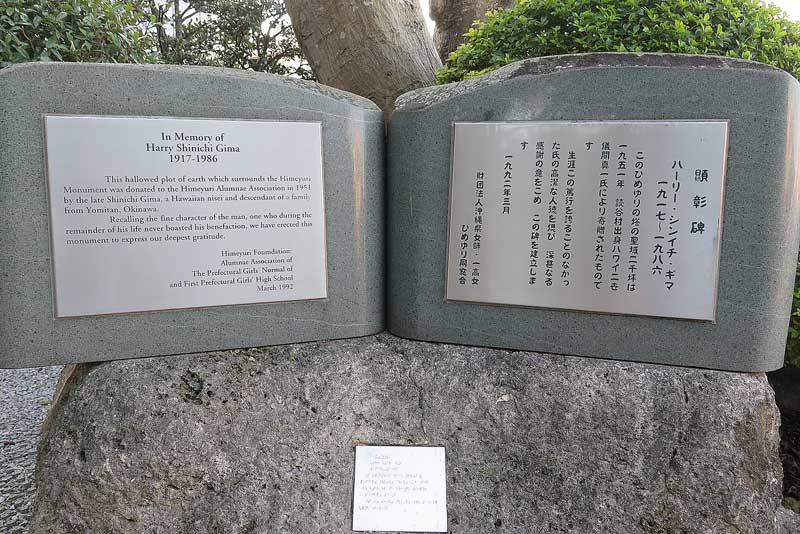 In Memory of
Harry Shinichi Gima
1917-1986
This hallowed plot of earth which surrounds the Himeyuri
Monument was donated to the Himeyuri Alumnae Association in 1951
by the late Shinichi Gima, a Hawaiian nisei and descendant of a family
from Yomitan, Okinawa.
Recalling the fine character of the man, one who during the
remainder of his life never boasted his benefaction, we have erected this
monument to express our deepest gratitude.
Himeyuri Foundation:
Alumnae Association of
The Prefectural Girls' Normal of
and First Prefectural Girls' High School
March 1992
顕彰碑
ハーリー・シンイチ・ギマ
一九一七〜一九八六
このひめゆりの塔の聖域二千坪は
一九五一年 読谷村出身ハワイ二世
儀間真一氏により寄贈されたもので
す
生涯この篤行を誇ることのなかっ
た氏の高潔な人徳を偲び 深甚なる
感謝の意をこめ この碑を建立しま
す
一九九二年三月
財団法人沖縄県女師・一高女
ひめゆり同窓会